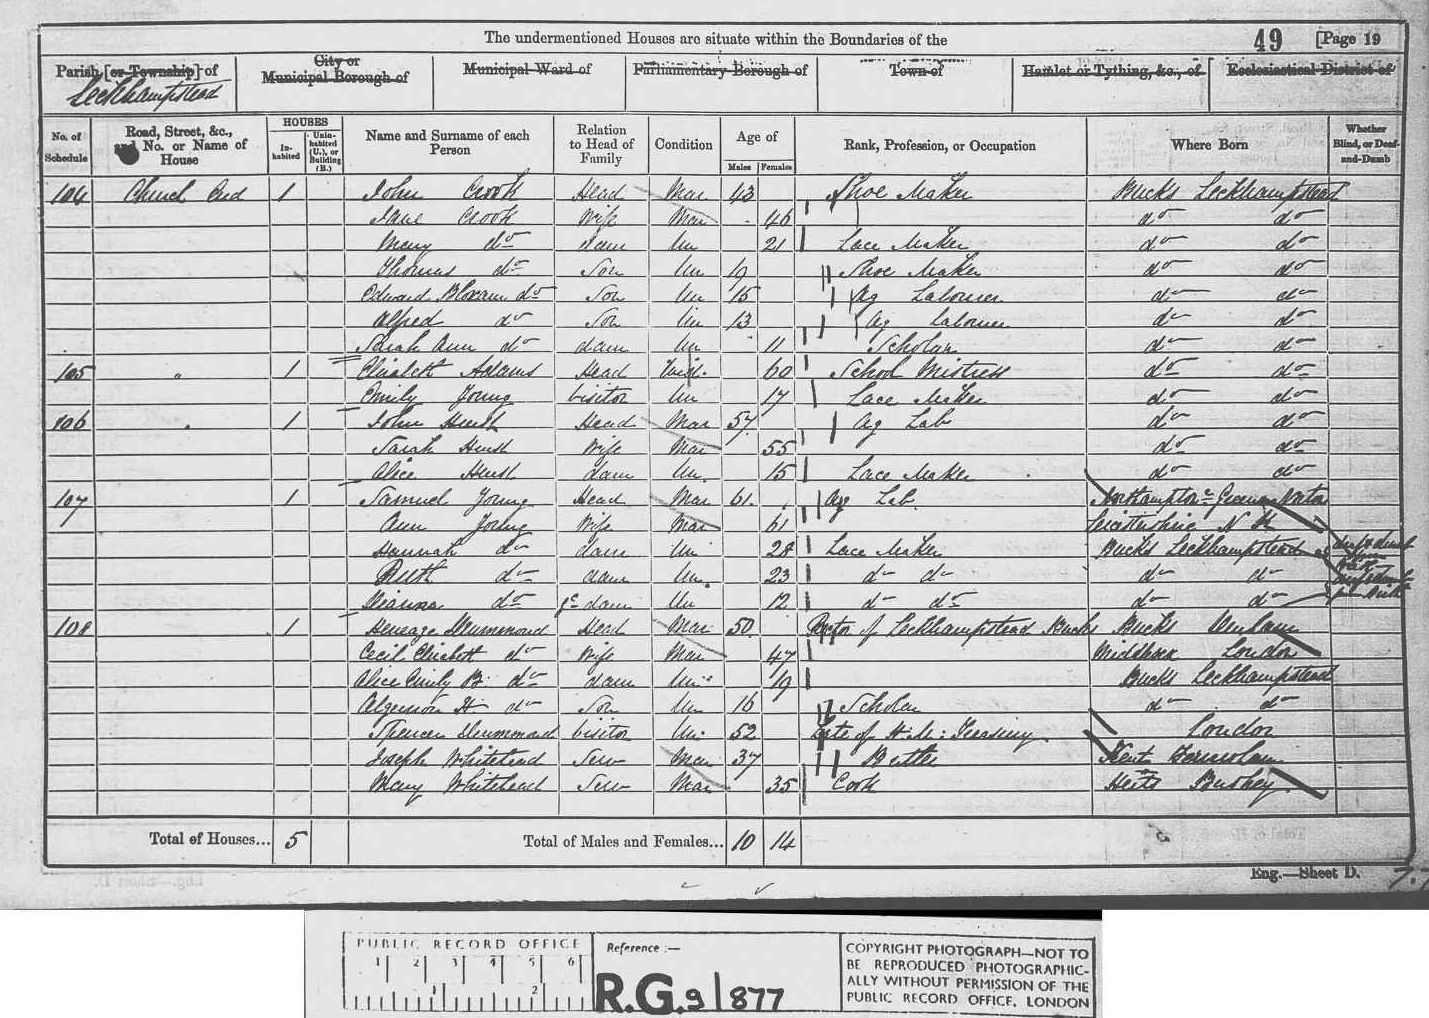 The undermentioned Houses are situate within the Boundaries of the 49 [Page 19
Parish [or Township] of Leckhampstead
City or Municipal Borough of
Municipal Ward of
Parliamentary Borough of
Town of
Hamlet or Tything, &c., of
Ecclesiastical District of
No. of Schedule
Road, Street, &c., and No. or Name of House
HOUSES
In-habited
Unin-habited (U.), or Building (B.)
Name and Surname of each Person
Relation to Head of Family
Condition
Age of
Males Females
Rank, Profession, or Occupation
Where Born
Whether Blind, or Deaf-and-Dumb
104 Church End 1 John Crook Head Mar 43 Shoe Maker Bucks Leckhampstead
Jane Crook Wife Mar 46 do do
Mary do daur Un 21 Lace Maker do do
Thomas do Son Un 19 Shoe Maker do do
Edward Bloxam do Son Un 15 Ag Labourer do do
Alfred do Son Un 13 Ag Labourer do do
Sarah Ann do daur Un 11 Scholar do do
105 " 1 Elizabeth Adams Head Wid. 60 School Mistress do do
Emily Young Visitor Un 17 Lace Maker do do
106 " 1 John Hurst Head Mar 57 Ag Lab do do
Sarah Hurst Wife Mar 55 do do
Alice Hurst daur Un. 15 Lace Maker do do
107 1 Samuel Young Head Mar 61 Ag Lab. Northampton Greens Norton
Ann Young Wife Mar 61 Leicestershire N K
Hannah do daur Un 28 Lace Maker Bucks Leckhampstead
Ruth do daur Un. 23 do do do do
do gd daur Un 12 do do do do
108 1 Heneage Drummond Head Mar 50 Rector of Leckhampstead Bucks Bucks Denham
Cecil Elizabeth do Wife Mar 47 Middsex London
Alice Emily B. do daur Un 19 Bucks Leckhampstead
Algernon H do Son Un 16 Scholar do do
Spencer Drummond Visitor Un. 52 Late of H.M: Treasury London
Joseph Whitehead Serv Mar 37 Butler Kent
Mary Whitehead Serv Mar 35 Cook Herts Bushey
Total of Houses... 5 Total of Males and Females... 10 14
Eng.—Sheet D.
PUBLIC RECORD OFFICE
1 2 3 4 5 6
1 2
Reference :—
R.G. 9/877
COPYRIGHT PHOTOGRAPH—NOT TO
BE REPRODUCED PHOTOGRAPHIC-
ALLY WITHOUT PERMISSION OF THE
PUBLIC RECORD OFFICE, LONDON